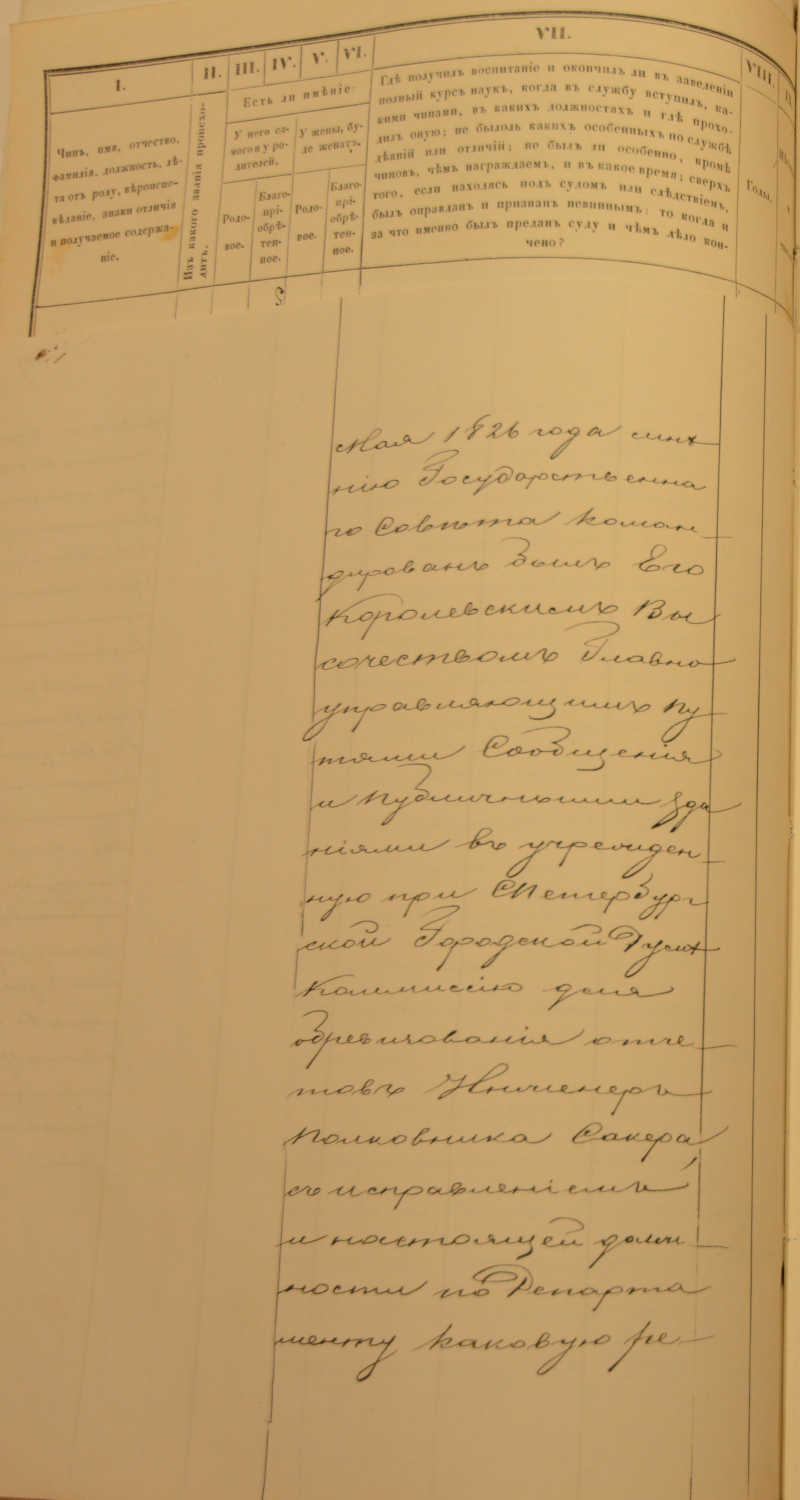 I.
II.
III.
IV.
V.
VI.
VII.
VIII.
Чинъ, имя, отчество,
фамилія, должность, лѣ-
та отъ роду, вѣроиспо-
вѣданіе, знаки отличія
и получаемое содержа-
ніе.
Изъ какого званія происхо-
дитъ.
Есть ли имѣніе
У него са-
мого и у ро-
дителей.
У жены, бу-
де женатъ.
Родо-
вое.
Благо-
прі-
обрѣ-
тен-
ное.
Родо-
вое.
Благо-
прі-
обрѣ-
тен-
ное.
Гдѣ получилъ воспитаніе и окончилъ ли въ заведеніи
полный курсъ наукъ, когда въ службу вступилъ, ка-
кими чинами, въ какихъ должностяхъ и гдѣ прохо-
дилъ оную; не было ль какихъ особенныхъ по службѣ
дѣяній или отличій; не былъ ли особенно, кромѣ
чиновъ, чѣмъ награждаемъ, и въ какое время; сверхъ
того, если находясь подъ судомъ или слѣдствіемъ,
былъ оправданъ и признанъ невиннымъ: то когда и
за что именно былъ преданъ суду и чѣмъ дѣло кон-
чено?
Годы.
мая 1826 года
нію Государственна
го Совѣта коман
дированъ былъ Его
Королевскимъ Вы
сочествомъ Главно
управляющимъ пу
тями Сообщенія
и Публичными зда
ніями въ учрежден
ную при СПетербург
ской Городской Думѣ
Коммисію для
обревизованія отче
товъ Инженеръ
Полковника Сакера,
съ исправленіемъ
и настоящей долж
ности по Департа
менту каковую ре